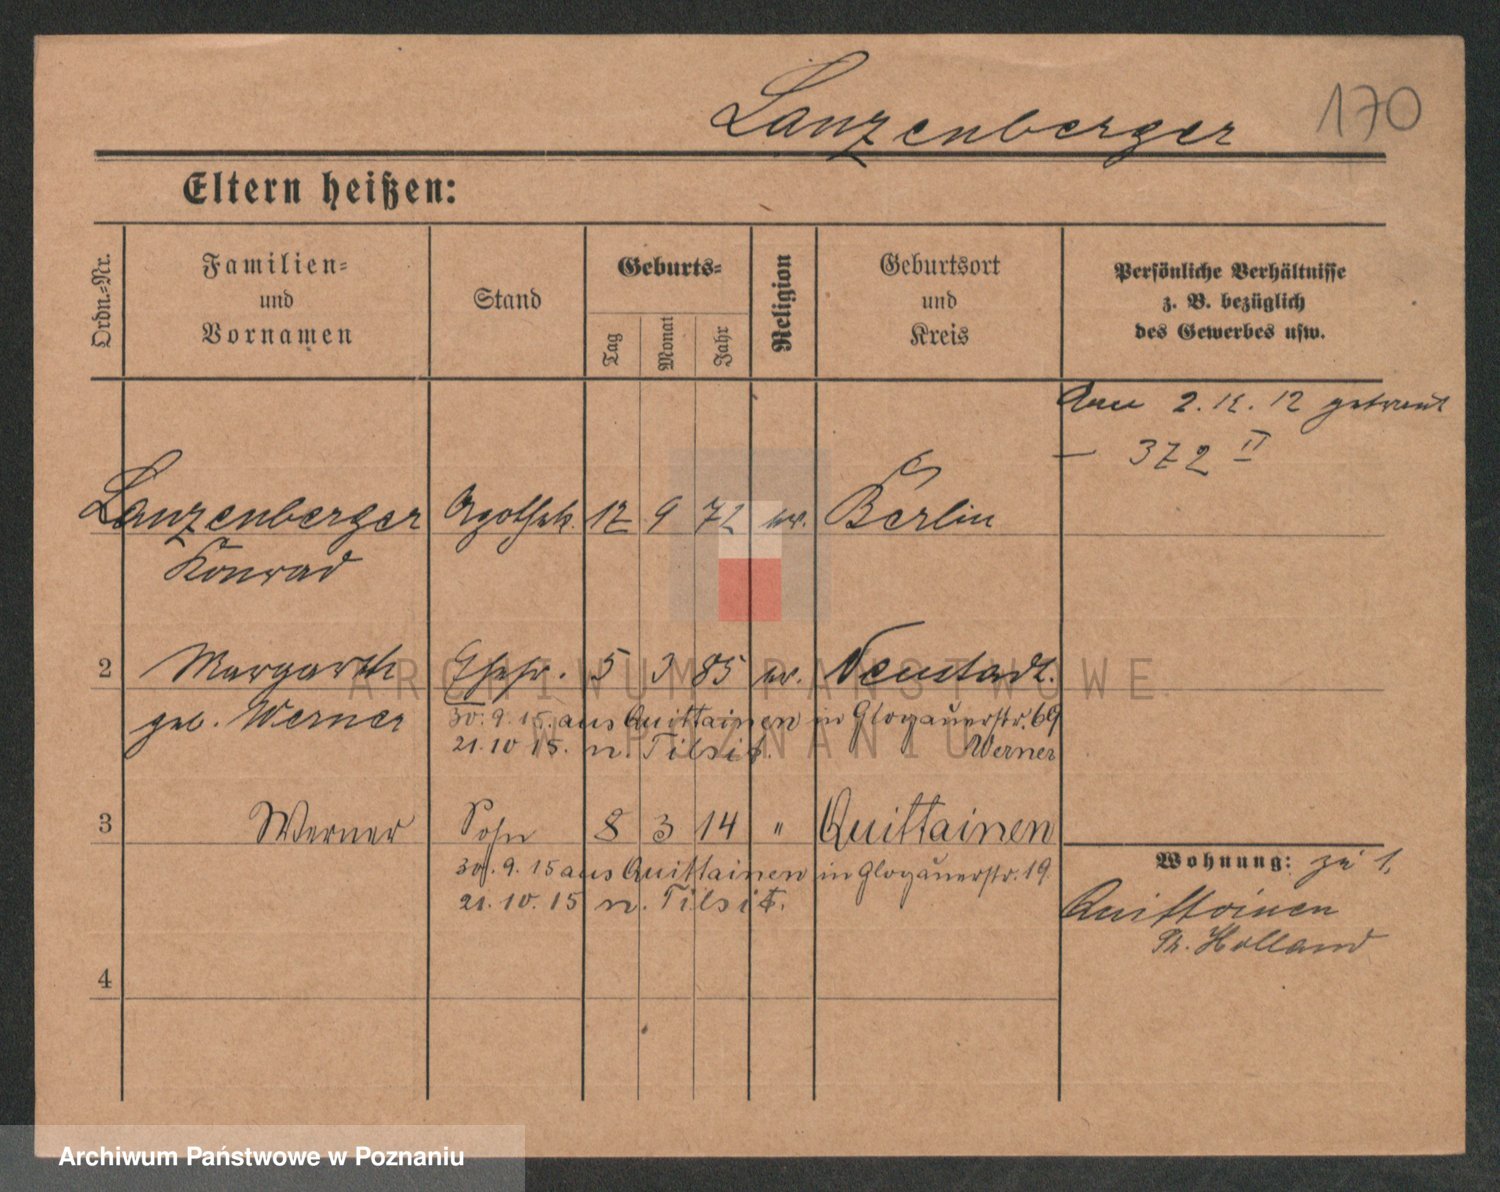 Lanzenberger 170
Eltern heißen:
Ordn.-Nr.
Familien-
und
Vornamen
Stand
Geburts-
Tag
Monat
Jahr
Religion
Geburtsort
und
Kreis
Persönliche Verhältnisse
z. B. bezüglich
des Gewerbes usw.
Am 2. 12. 12 getraut
— 372 II
Lanzenberger Apothek. 17 9 72 ev. Berlin
Konrad
2 Margareth Ehefr. 5 3 85 ev. Neustadt.
geb. Werner 30. 9. 15. aus Quittainen in Glogauerstr. 69
21. 10 15. n. Tilsit. Werner
3 Werner Sohn 8 3 14 " Quittainen
30. 9. 15 aus Quittainen in Glogauerstr. 19
21. 10. 15 n. Tilsit.
Wohnung: zu 1,
Quittainen
Pr. Holland
4
ARCHIWUM PAŃSTWOWE
W POZNANIU
Archiwum Państwowe w Poznaniu